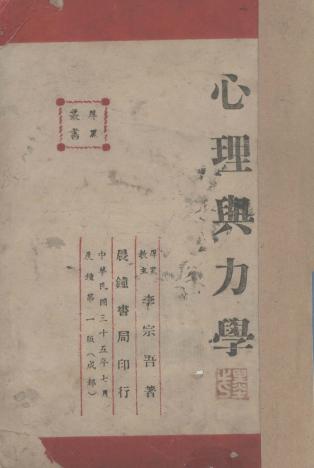 心理與力學
厚黑
叢書
厚黑
教主
李宗吾著
晨鐘書局印行
中華民國三十五年七月
晨鐘第一版(成都)